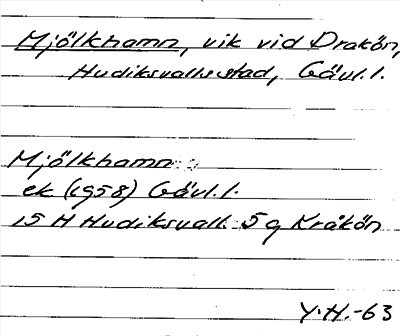 Mjölkhamn, vik vid Drakön,
Hudiksvalls stad, Gävl.l.
Mjölkhamn
ek (1958) Gävl.l.
15 H Hudiksvall 5 g Kråkön
Y.H.-63